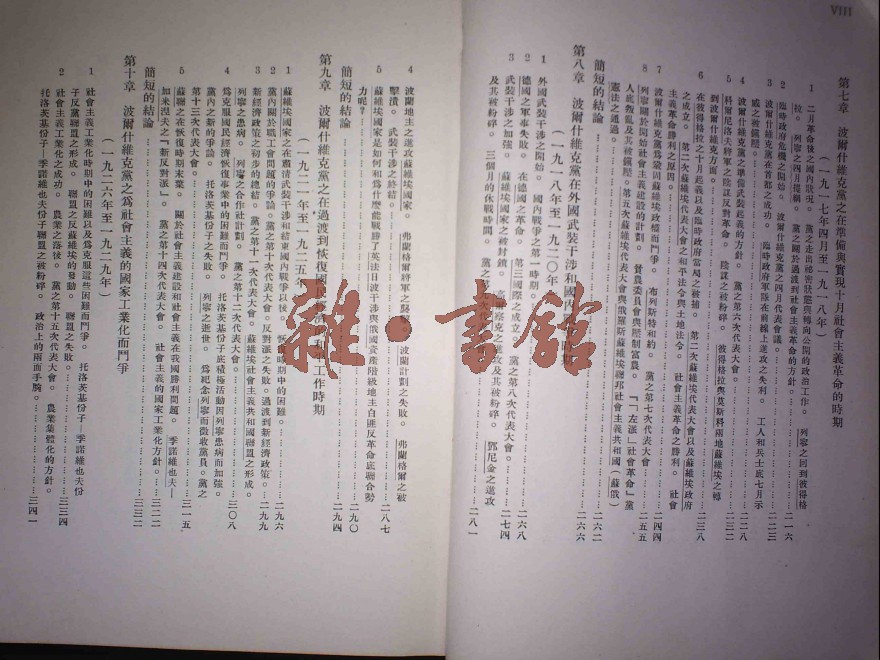 VIII
第七章 波爾什維克黨之在準備與實現十月社會主義革命的時期
(一九一七年四月至一九一八年)
1 二月革命後之國內狀況。 黨之走出祕密狀態與轉向公開的政治工作。 列寧之回到彼得格
拉。 列寧之四月提綱。 黨之關於過渡到社會主義革命的方針。……二一六
2 臨時政府危機之開始。 波爾什維克黨之四月代表會議。……
3 波爾什維克黨在首都之成功。 臨時政府軍隊在前線上進攻之失利。 工人和兵士底七月示
威之被鎮壓。……二二三
4 波爾什維克黨之準備武裝起義的方針。 黨之第六次代表大會。……二二八
5 科爾尼洛夫將軍之陰謀反對革命。 陰謀之被粉碎。 彼得格拉與莫斯科兩地蘇維埃之轉
到波爾什維克方面。……
6 在彼得格拉之十月起義以及臨時政府當局之被捕。 第二次蘇維埃代表大會以及蘇維埃政府
之成立。 第二次蘇維埃代表大會之和平法令與土地法令。 社會主義革命之勝利。 社會
主義革命勝利之原因。……二三八
7 波爾什維克黨爲鞏固蘇維埃政權而鬥爭。 布列斯特和約。 黨之第七次代表大會……二四四
8 列寧關於開始社會主義建設的計劃。 貧農委員會與壓制富農。 「『左派』社會革命」黨
人底叛亂及其被鎮壓。第五次蘇維埃代表大會與俄羅斯蘇維埃聯邦社會主義共和國(蘇俄)
憲法之通過。……二五五
簡短的結論……二六六
第八章 波爾什維克黨在外國武裝干涉和國內戰爭時期
(一九一八年至一九二〇年)
1 外國武裝干涉之開始。 國內戰爭之第一時期。……
2 德國之軍事失敗。 在德國之革命。 第三國際之成立。 黨之第八次代表大會。……二六八
3 武裝干涉之加強。 蘇維埃國家之被封鎖。 高爾察克之進攻及其被粉碎。 鄧尼金之進攻
及其被粉碎。 三個月的休戰期間。 黨之第九次代表大會。……二八一
4 波蘭地主之進攻蘇維埃國家。 弗蘭格爾將軍之襲擊。 波蘭計劃之失敗。 弗蘭格爾之被
擊潰。 武裝干涉之終結。……二八七
5 蘇維埃國家是如何和爲什麼能戰勝了英法日波干涉與俄國資產階級地主白匪反革命底聯合勢
力呢?……二九〇
簡短的結論……二九四
第九章 波爾什維克黨之在過渡到恢復國民經濟的和平工作時期
(一九二一年至一九二五年)
1 蘇維埃國家之在肅清武裝干涉和結束國內戰爭以後。 恢復時期中的困難。……二九六
2 黨內關於職工會問題的爭論。 黨之第十次代表大會。 反對派之失敗。過渡到新經濟政策。……二九九
3 新經濟政策之初步的總結。 黨之第十一次代表大會。 蘇維埃社會主義共和國聯盟之形成。
列寧之患病。 列寧之合作社計劃。 黨之第十二次代表大會。……三〇八
4 爲克服國民經濟恢復事業中的困難而鬥爭。 托洛茨基份子底積極活動因列寧患病而加強。
黨內之新的爭論。 托洛茨基份子之失敗。 列寧之逝世。 爲紀念列寧而徵收黨員。黨之
第十三次代表大會。……
5 蘇聯之在恢復時期末葉。 關於社會主義建設和社會主義在我國勝利問題。 季諾維也夫—
加米涅夫之『新反對派』。 黨之第十四次代表大會。 社會主義的國家工業化方針。……三一五
簡短的結論……三二二
第十章 波爾什維克黨之爲社會主義的國家工業化而鬥爭
(一九二六年至一九二九年)
1 社會主義工業化時期中的困難以及爲克服這些困難而鬥爭。 托洛茨基份子—季諾維也夫份
子反黨聯盟之形成。 聯盟之反蘇維埃的發動。 聯盟之失敗。……三三四
2 社會主義工業化之成功。 農業之落後。 黨之第十五次代表大會。 農業集體化的方針。
托洛茨基份子—季諾維也夫份子聯盟之被粉碎。 政治上的兩面手腕。……三四一
雜·書館